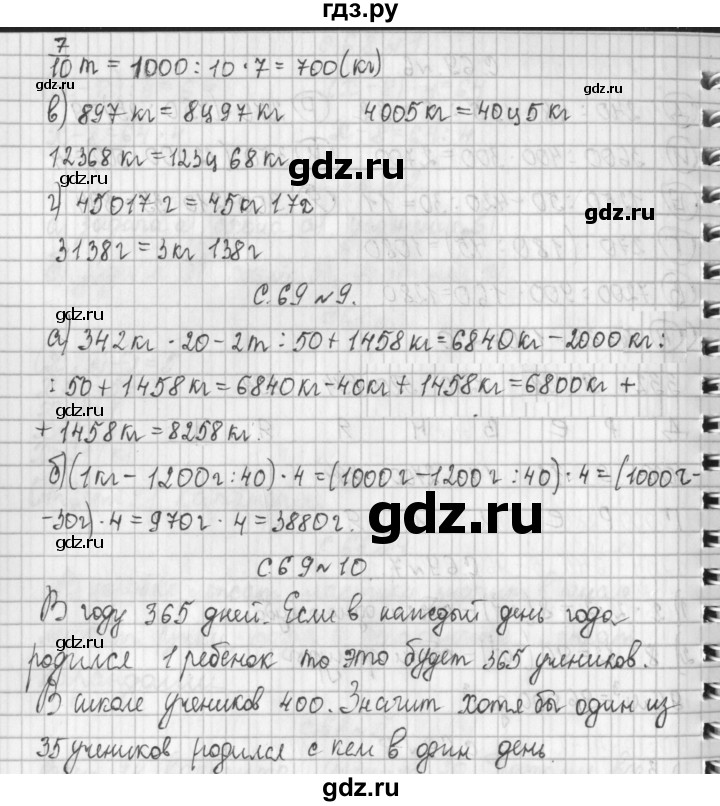 гдз.ру
7
10 т = 1000 : 10 · 7 = 700 (кг)
в) 897 кг = 8ц 97 кг 4005 кг = 40ц 5 кг
12368 кг = 123ц 68 кг
gdz.ru
gdz.ru
г) 45017 г = 45кг 17г
3138 г = 3кг 138 г
gdz.ru
С. 69 №9.
а) 342 кг · 20 - 2т : 50 + 1458 кг = 6840 кг - 2000 кг :
: 50 + 1458 кг = 6840 кг - 40кг + 1458 кг = 6800 кг +
gdz.ru
+ 1458 кг = 8258 кг.
б) (1кг - 1200 г : 40) · 4 = (1000 г - 1200 г : 40) · 4 = (1000 г -
gdz.ru
- 30г) · 4 = 970 г · 4 = 3880 г.
gdz.ru
С. 69 №10
В году 365 дней. Если в каждый день года
gdz.ru
родился 1 ребенок то это будет 365 учеников.
В школе учеников 400. Значит хотя бы один из
35 учеников родился с кем в один день.
gdz.ru
gdz.ru